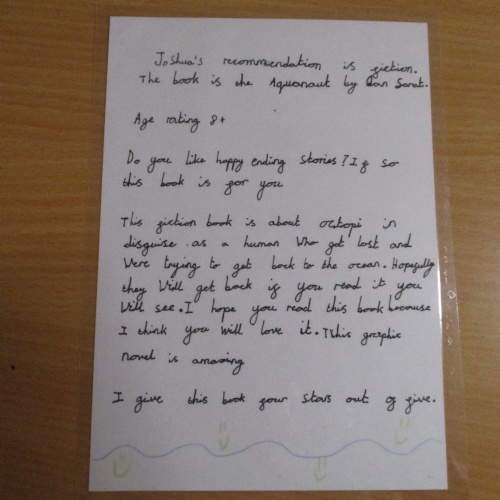 Joshua's recommendation is fiction.
The book is the Aquanaut by Dan Sarat.
Age rating 8+
Do you like happy ending stories? If so
this book is for you
This fiction book is about octopi in
disguise as a human who got lost and
were trying to get back to the ocean. Hopefully
they will get back if you read it you
will see. I hope you read this book because
I think you will love it. This graphic
novel is amazing
I give this book four stars out of five.